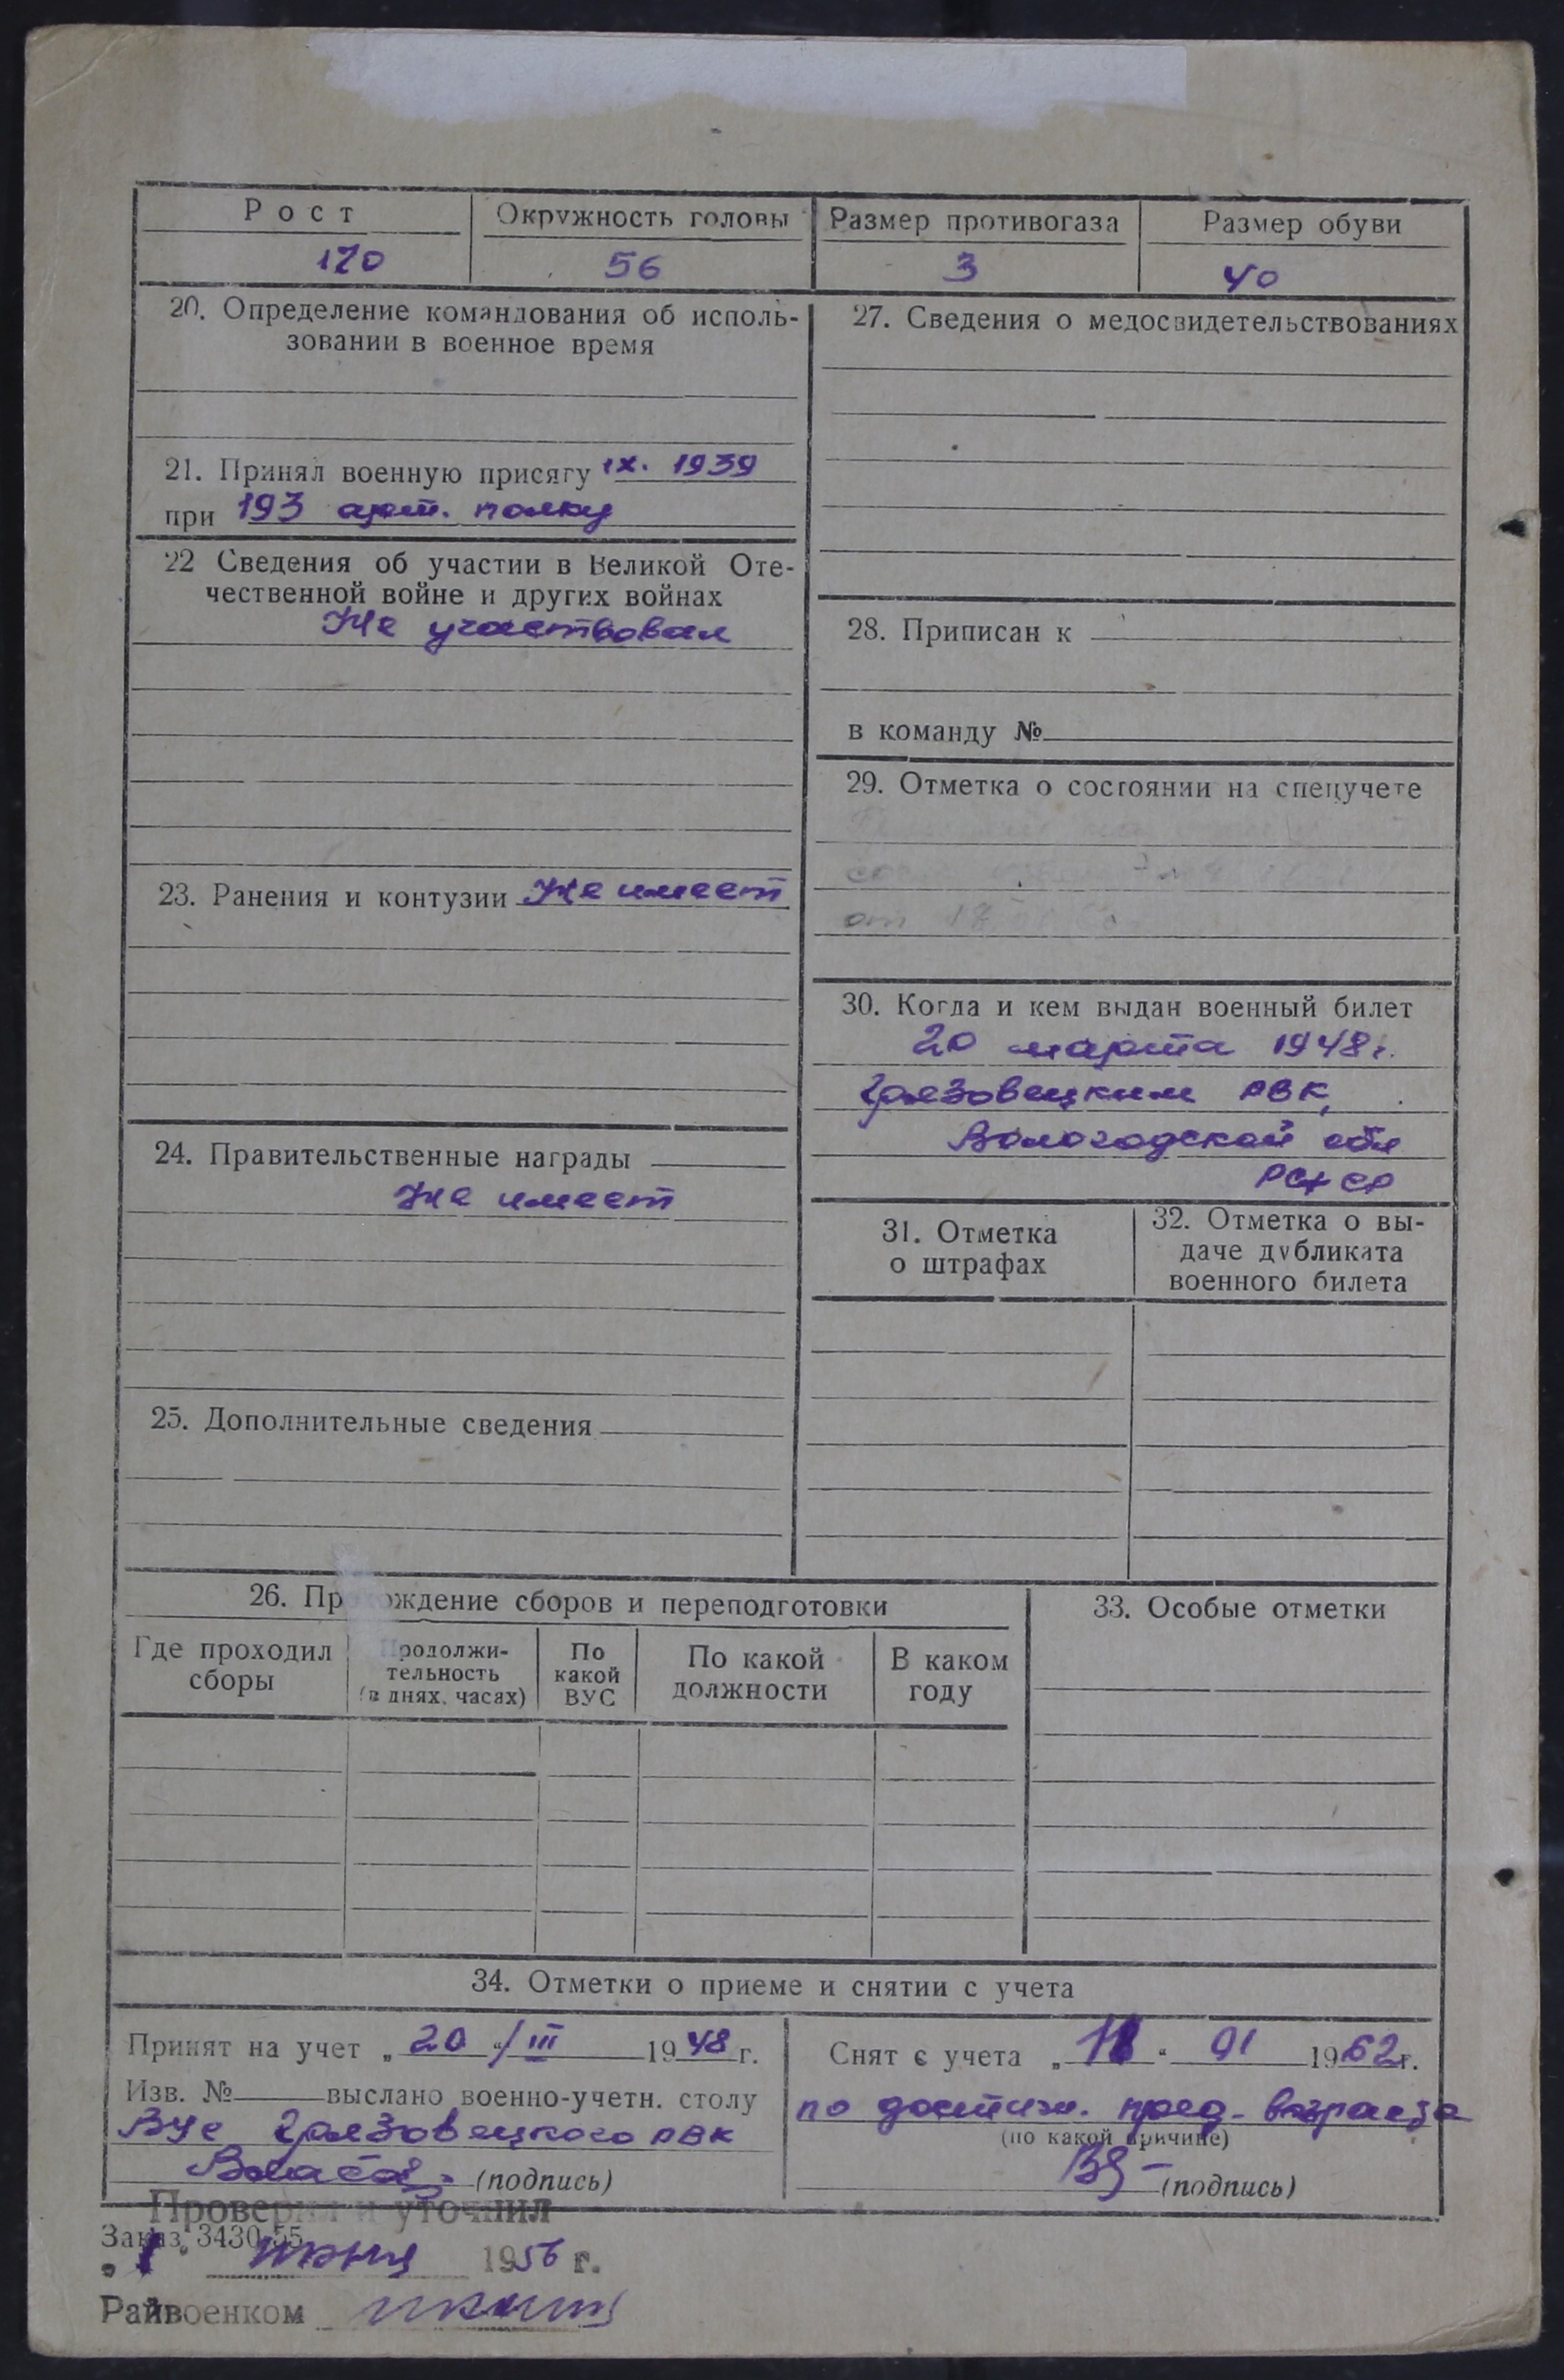 Рост
170
Окружность головы
56
Размер противогаза
3
Размер обуви
40
20. Определение командования об исполь-
зовании в военное время
21. Принял военную присягу IX. 1939
при 193 арт. полку
22 Сведения об участии в Великой Оте-
чественной войне и других войнах
Не участвовал
23. Ранения и контузии Не имеет
24. Правительственные награды
Не имеет
25. Дополнительные сведения
27. Сведения о медосвидетельствованиях
28. Приписан к
в команду №
29. Отметка о состоянии на спецучете
от
30. Когда и кем выдан военный билет
20 марта 1948 г.
Грязовецким РВК,
Вологодской обл
РСФСР
31. Отметка
о штрафах
32. Отметка о вы-
даче дубликата
военного билета
26. Прохождение сборов и переподготовки
Где проходил
сборы
Продолжи-
тельность
(в днях, часах)
По
какой
ВУС
По какой
должности
В каком
году
33. Особые отметки
34. Отметки о приеме и снятии с учета
Принят на учет „ 20 “ / III 1948 г.
Изв. № выслано военно-учетн. столу
ВУС Грязовецкого РВК
(подпись)
Снят с учета „ “ 01 1962 г.
по достиж. пред. возраста
(по какой причине)
(подпись)
Проверил и уточнил
Заказ 3430-55
„ 1 “ 1956 г.
Райвоенком